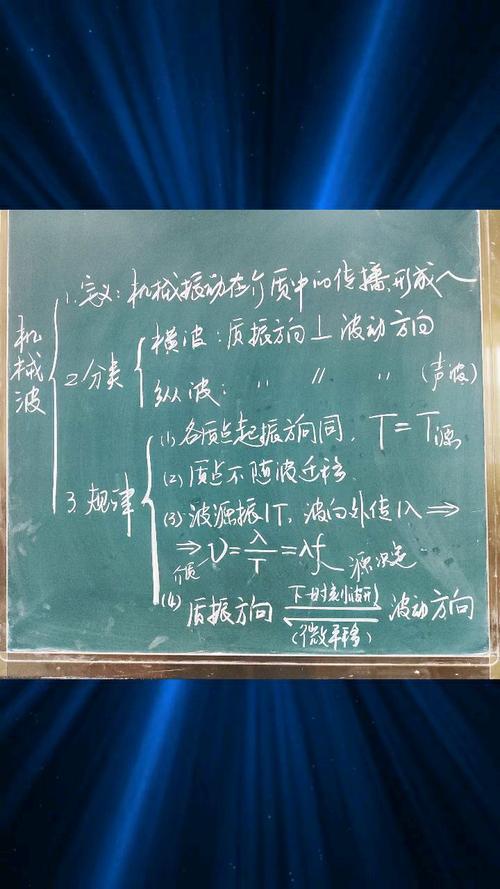 机械波
1.定义:机械振动在介质中的传播,形成~
2.分类
横波:质振方向⊥波动方向
纵波: 〃 // 〃 (声波)
3.规律
(1)各质点起振方向同, T=T源
(2)质点不随波迁移
(3)波源振1T,波向外传1λ⇒
⇒v=λ/T=λf
介质 源决定
(4)质振方向 ⇌ 波动方向
(微平移)